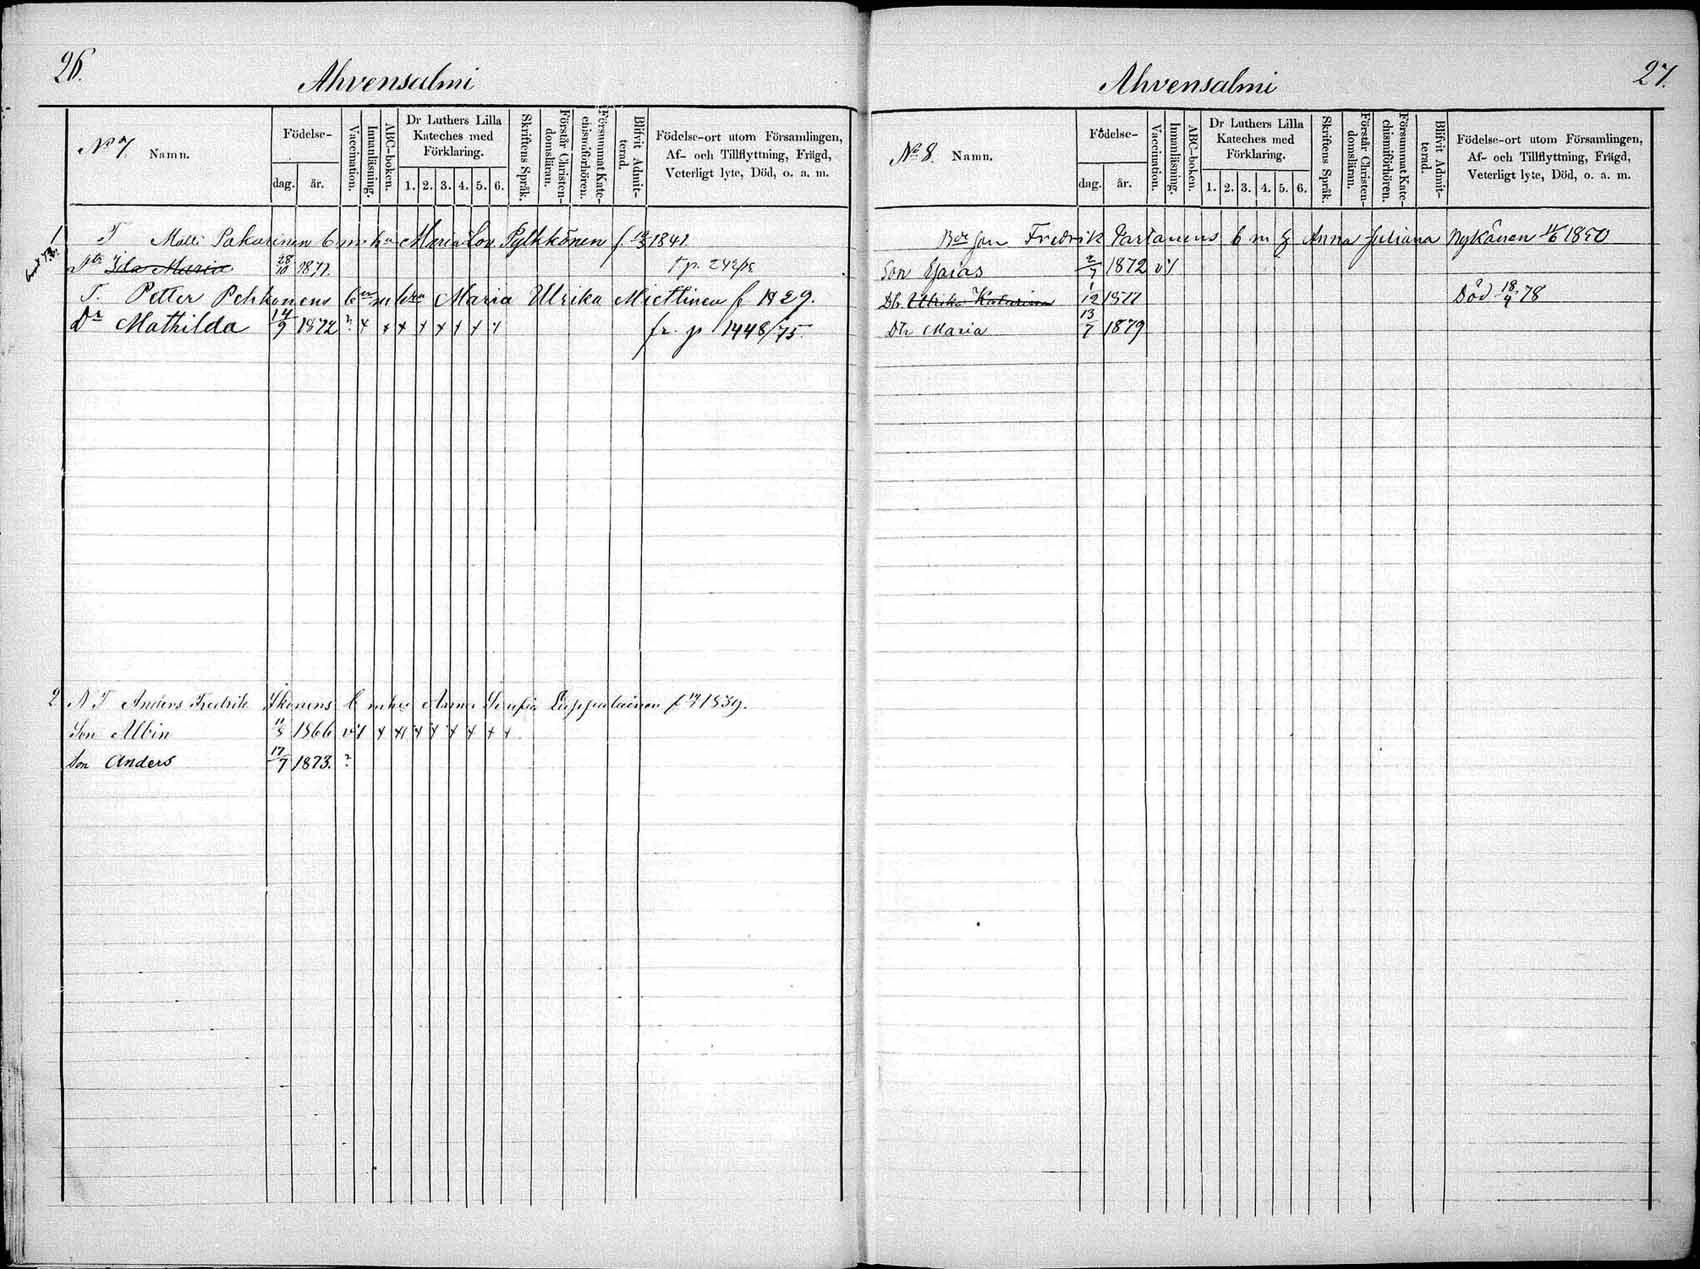 26.
Ahvensalmi
No 7 Namn.
Födelse-
dag. år.
Vaccination.
Innanläsning.
ABC-boken.
Dr Luthers Lilla Kateches med Förklaring.
1. 2. 3. 4. 5. 6.
Skriftens Språk.
Förstår Christen-domsläran.
Försummat Kate-chismiförhören.
Blifvit Admit-terad.
Födelse-ort utom Församlingen, Af- och Tillflyttning, Frägd, Veterligt lyte, Död, o. a. m.
1 T Matti Pakarinen Maria Lov. Pylkkönen f. 1841
Ida Maria 28/10 1877
T. Petter Pehkonens Maria Ulrika Miettinen f 1829.
Dr Mathilda 14/9 1872 ? x x x x x x x x fr. p 1448/75.
2 N T Anders Fredrik Ikonens Anna Sofia f 1839.
Son Albin 1866 v x x x x x x x x
Son Anders 17/7 1873. ?
27.
Ahvensalmi
No 8. Namn.
Födelse-
dag. år.
Vaccination.
Innanläsning.
ABC-boken.
Dr Luthers Lilla Kateches med Förklaring.
1. 2. 3. 4. 5. 6.
Skriftens Språk.
Förstår Christen-domsläran.
Försummat Kate-chismiförhören.
Blifvit Admit-terad.
Födelse-ort utom Församlingen, Af- och Tillflyttning, Frägd, Veterligt lyte, Död, o. a. m.
Fredrik Partanens Anna Juliana Nykänen 1850
Son Esaias 2/7 1872 v
Dr. Ulrika Katarina 1/12 1877 Död 18/4 78
Dtr Maria 13/7 1879